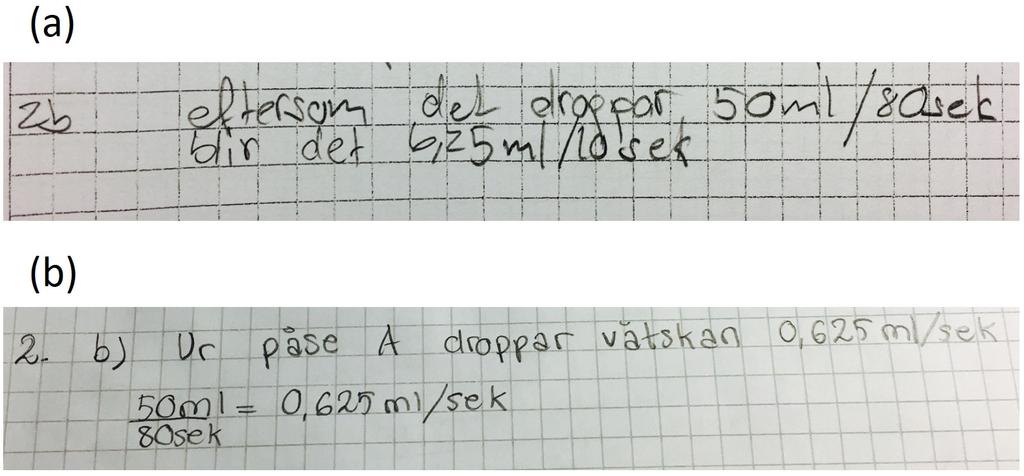 (a)
2b eftersom det droppar 50ml/80sek
blir det 6,25ml/10sek
(b)
2. b) Ur påse A droppar vätskan 0,625ml/sek
50ml = 0,625ml/sek
80sek